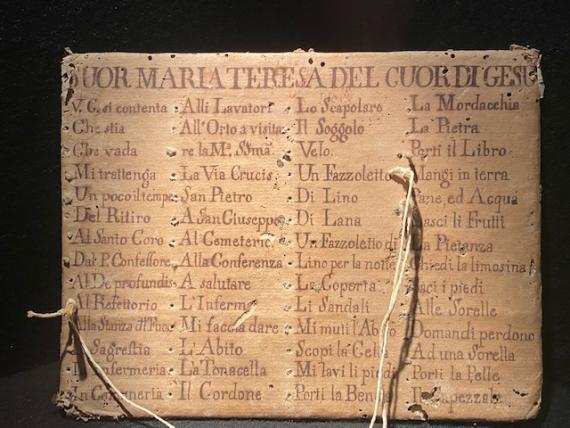 SUOR MARIA TERESA DEL CUOR DI GESU
V. C. si contenta
Che stia
Che vada
Mi trattenga
Un poco il tempo
Del Ritiro
Al Santo Coro
Dal P. Confessore
Al De profundis
Al Refettorio
Alla Stanza del
Sagrestia
Infermeria
In Comuneria
Alli Lavatori
All'Orto a visita
re la Mª. SSma.
La Via Crucis
San Pietro
A San Giuseppe
Al Cemeterio
Alla Conferenza
A salutare
L'Inferma
Mi faccia dare
L'Abito
La Tonacella
Il Cordone
Lo Scapolare
Il Soggolo
Velo
Un Fazzoletto
Di Lino
Di Lana
Un Fazzoletto di
Lino per la notte
La Coperta
Li Sandali
Mi muti l'Abito
Scopi la Cella
Mi lavi li piedi
Porti la
La Mordacchia
La Pietra
Porti il Libro
Mangi in terra
Pane, ed Acqua
Lasci li Frutti
La Pietanza
Chiedi la limosina
Baci i piedi
Alle Sorelle
Domandi perdono
Ad una Sorella
Porti la Pelle
Il Capezzale